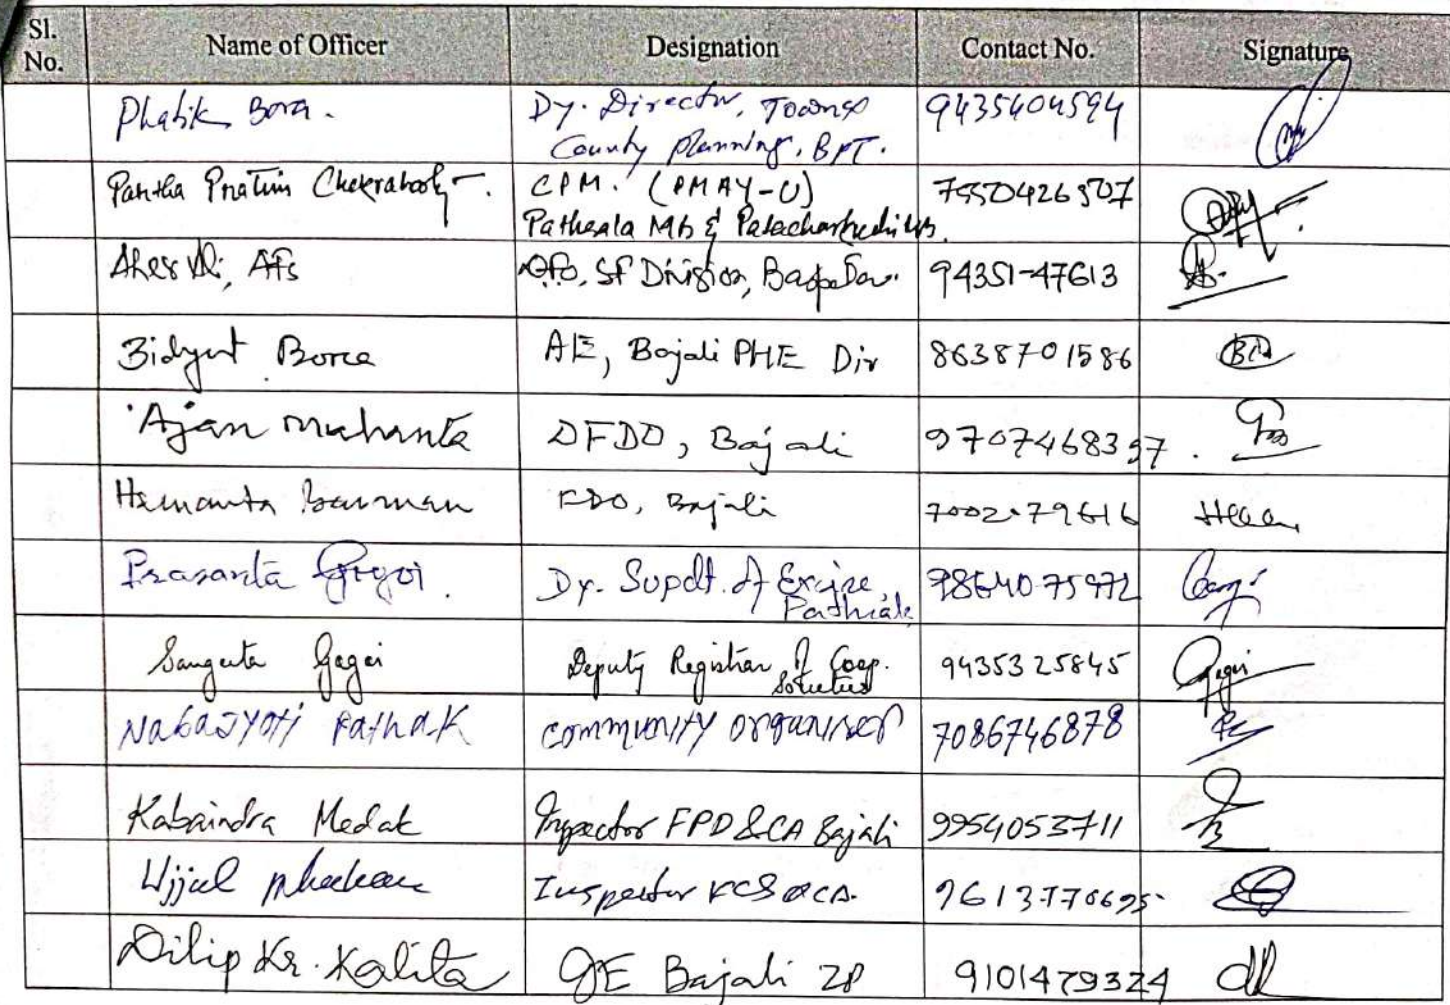 Sl. No. Name of Officer Designation Contact No. Signature
Phatik Bora. Dy. Director, Town &
County Planning, BPT. 9435404594
Partha Pratim Chakraborty. CPM. (PMAY-U)
Pathsala MB & 7550426507
Aher Ali, AFS DFO, SF Division, 94351-47613
Bidyut Bora AE, Bajali PHE Div 8638701586
Ajan Mahanta DFDO, Bajali 9707468397.
Hemanta Barman FDO, Bajali
Prasanta Gogoi. Dy. Supdt. of Excise, Pathsala
Sangeeta Gogoi Deputy Registrar of Coop. Societies 9435325845 Gogoi
Nabajyoti Pathak community organiser 7086746878
Kabaindra Medak Inspector FPD & CA Bajali 9954053711
Ujjal Phukan Inspector FCS & CA.
Dilip Kr. Kalita JE Bajali ZP 9101479324